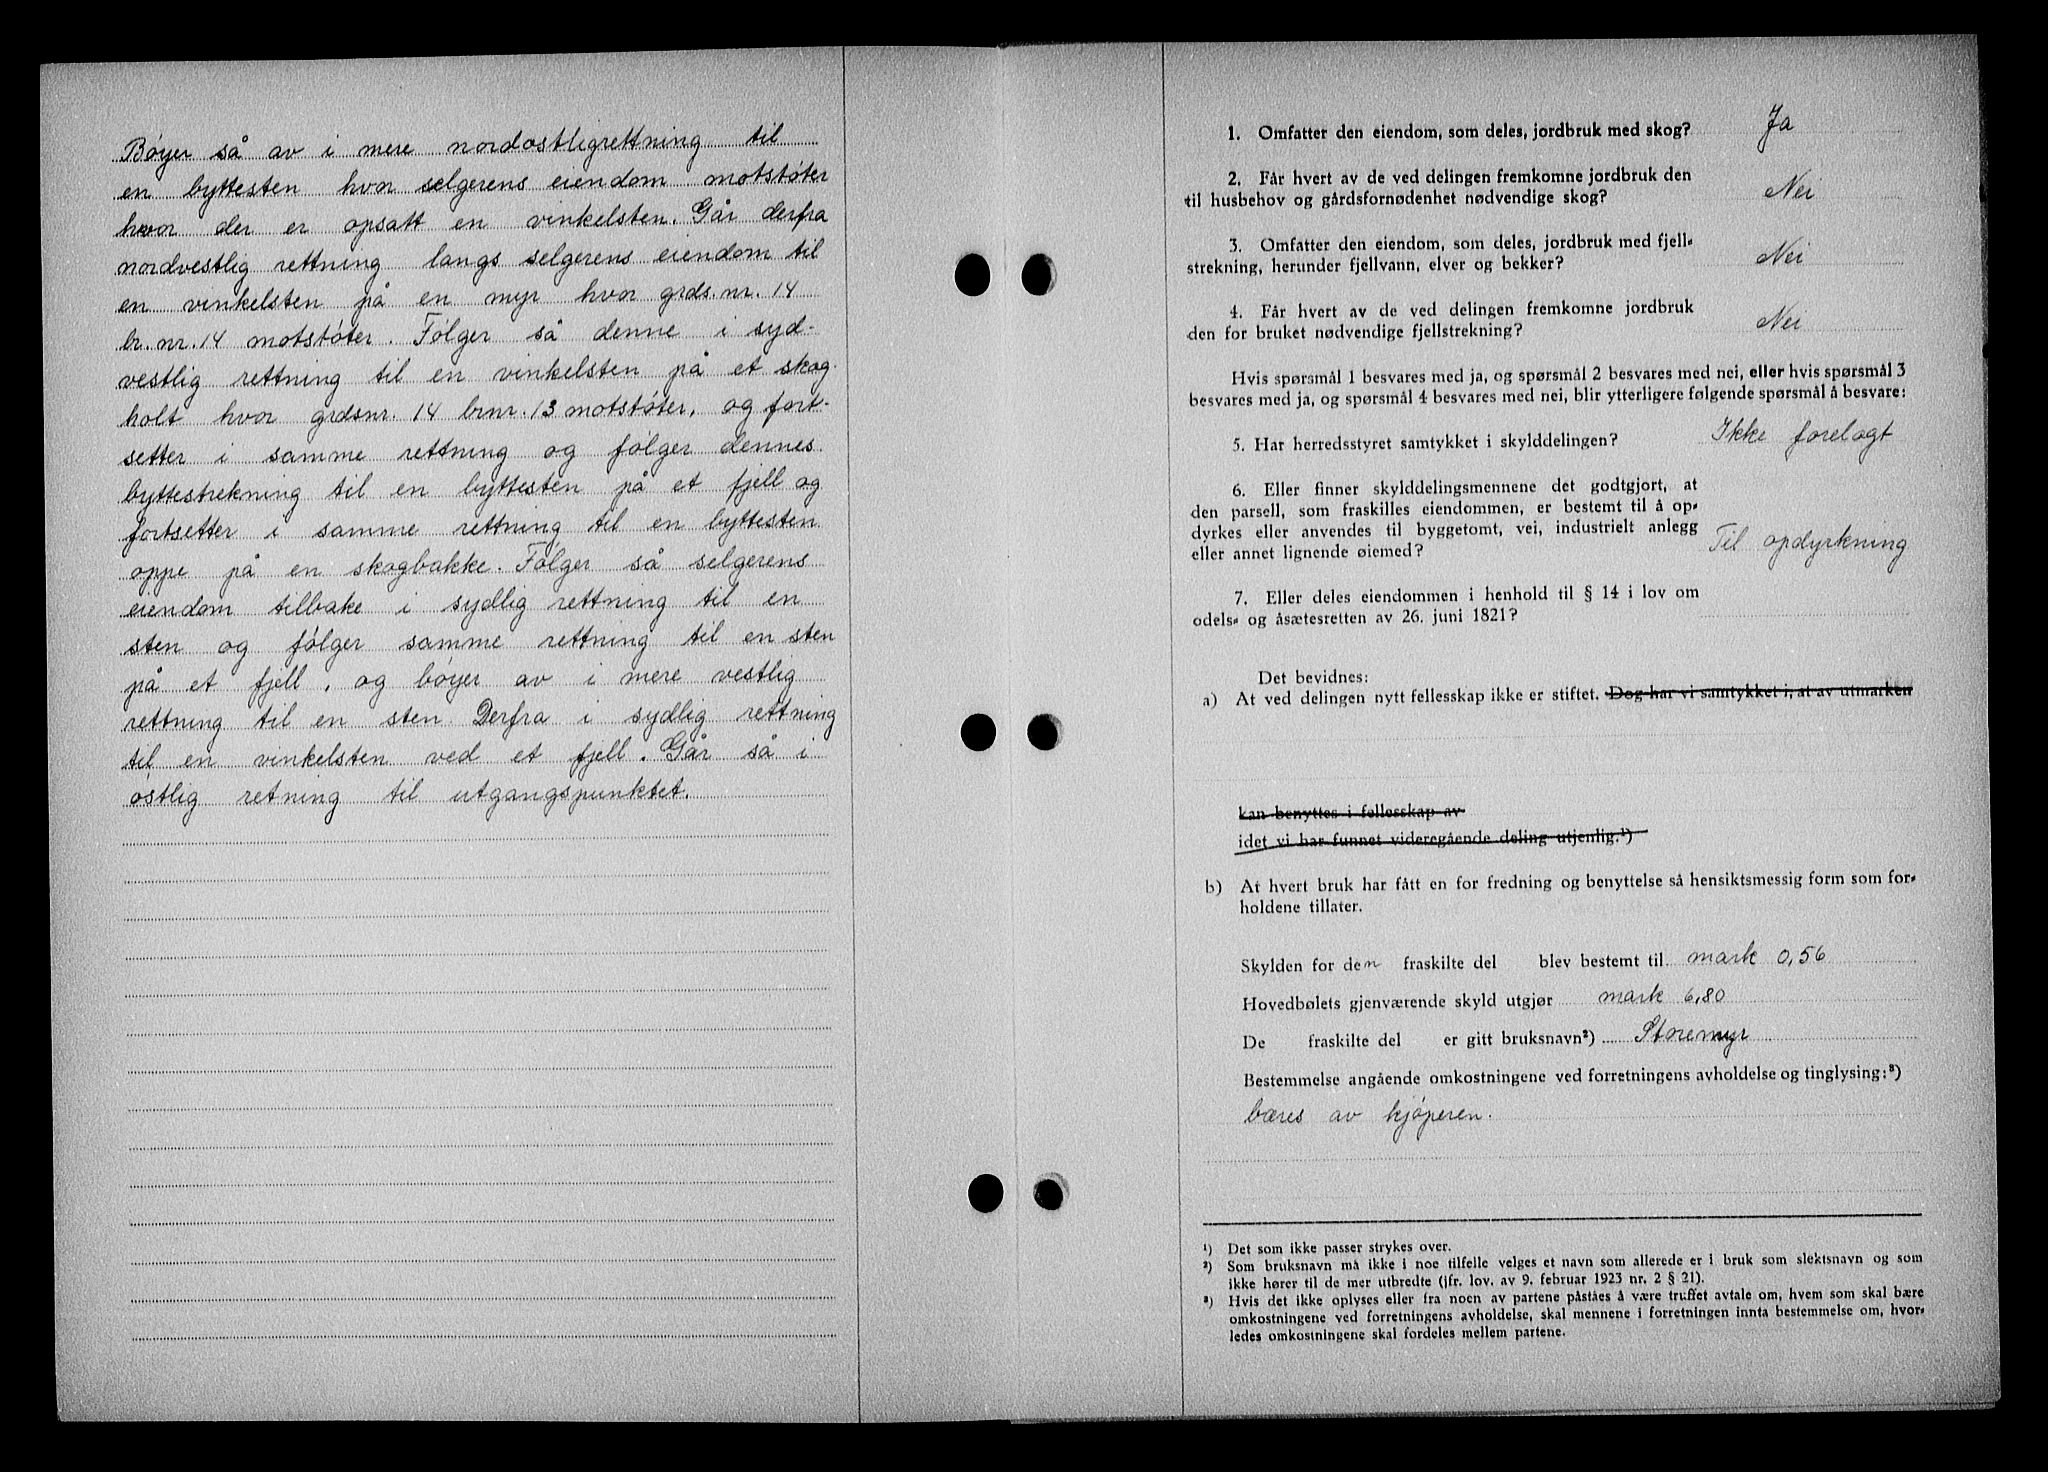 Bøyer så av i mere nordostligrettning til
en byttesten hvor selgerens eiendom motstøter
hvor der er opsatt en vinkelsten. Går derfra
nordvestlig rettning langs selgerens eiendom til
en vinkelsten på en myr hvor grds.nr. 14
br.nr. 14 motstøter. Følger så denne i syd-
vestlig rettning til en vinkelsten på et skog-
holt hvor grdsnr. 14 brnr. 13 motstøter, og fort-
setter i samme rettning og følger dennes
byttestrekning til en byttesten på et fjell og
fortsetter i samme rettning til en byttesten
oppe på en skogbakke. Følger så selgerens
eiendom tilbake i sydlig rettning til en
sten og følger samme rettning til en sten
på et fjell, og bøyer av i mere vestlig
rettning til en sten Derfra i sydlig rettning
til en vinkelsten ved et fjell. Går så i
østlig retning til utgangspunktet.
1. Omfatter den eiendom, som deles, jordbruk med skog? Ja
2. Får hvert av de ved delingen fremkomne jordbruk den
til husbehov og gårdsfornødenhet nødvendige skog? Nei
3. Omfatter den eiendom, som deles, jordbruk med fjell-
strekning, herunder fjellvann, elver og bekker? Nei
4. Får hvert av de ved delingen fremkomne jordbruk
den for bruket nødvendige fjellstrekning? Nei
Hvis spørsmål 1 besvares med ja, og spørsmål 2 besvares med nei, eller hvis spørsmål 3
besvares med ja, og spørsmål 4 besvares med nei, blir ytterligere følgende spørsmål å besvare:
5. Har herredsstyret samtykket i skylddelingen? Ikke forelagt
6. Eller finner skylddelingsmennene det godtgjort, at
den parsell, som fraskilles eiendommen, er bestemt til å op-
dyrkes eller anvendes til byggetomt, vei, industrielt anlegg
eller annet lignende øiemed? Til opdyrkning
7. Eller deles eiendommen i henhold til § 14 i lov om
odels- og åsætesretten av 26. juni 1821?
Det bevidnes:
a) At ved delingen nytt fellesskap ikke er stiftet. Dog har vi samtykket i, at av utmarken
kan benyttes i fellesskap av
idet vi har funnet videregående deling utjenlig.¹)
b) At hvert bruk har fått en for fredning og benyttelse så hensiktsmessig form som for-
holdene tillater.
Skylden for den fraskilte del blev bestemt til mark 0,56
Hovedbølets gjenværende skyld utgjør mark 6,80
De fraskilte del er gitt bruksnavn²) Storemyr
Bestemmelse angående omkostningene ved forretningens avholdelse og tinglysing:³)
bæres av kjøperen.
¹) Det som ikke passer strykes over.
²) Som bruksnavn må ikke i noe tilfelle velges et navn som allerede er i bruk som slektsnavn og som
ikke hører til de mer utbredte (jfr. lov. av 9. februar 1923 nr. 2 § 21).
³) Hvis det ikke oplyses eller fra noen av partene påståes å være truffet avtale om, hvem som skal bære
omkostningene ved forretningens avholdelse, skal mennene i forretningen innta bestemmelse om, hvor-
ledes omkostningene skal fordeles mellem partene.